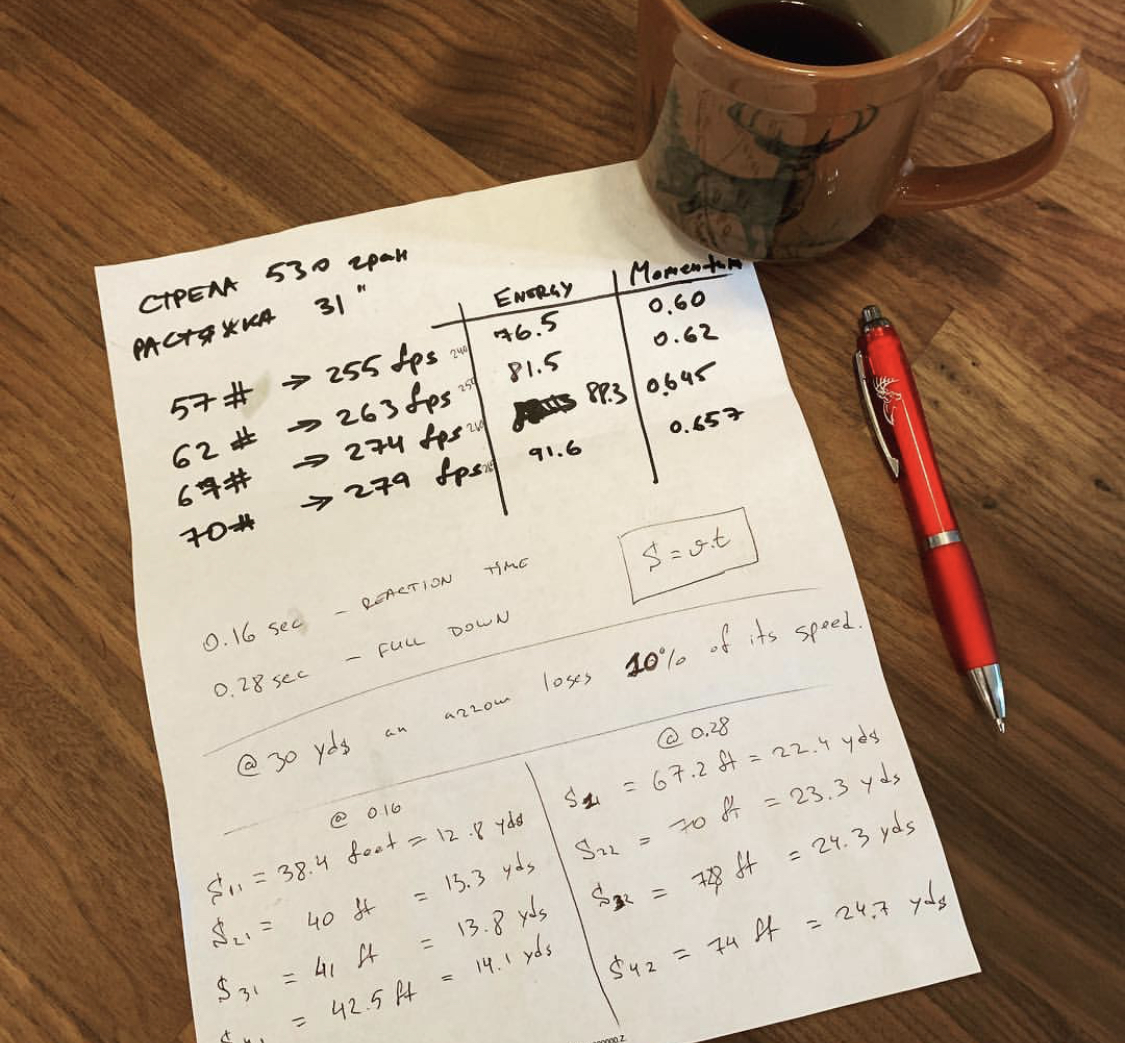 СТРЕЛА 530 гран
РАСТЯЖКА 31"
ENERGY Momentum
57# → 255 fps 240 76.5 0.60
62# → 263 fps 250 81.5 0.62
67# → 274 fps 88.3 0.645
70# → 279 fps 91.6 0.657
S = v.t
0.16 sec – REACTION TIME
0.28 sec – FULL DOWN
@ 30 yds an arrow loses 10% of its speed.
@ 0.16
S11 = 38.4 feet = 12.8 yds
S21 = 40 ft = 13.3 yds
S31 = 41 ft = 13.8 yds
= 42.5 ft = 14.1 yds
@ 0.28
= 67.2 ft = 22.4 yds
S22 = 70 ft = 23.3 yds
S32 = ft = 24.3 yds
S42 = 74 ft = 24.7 yds